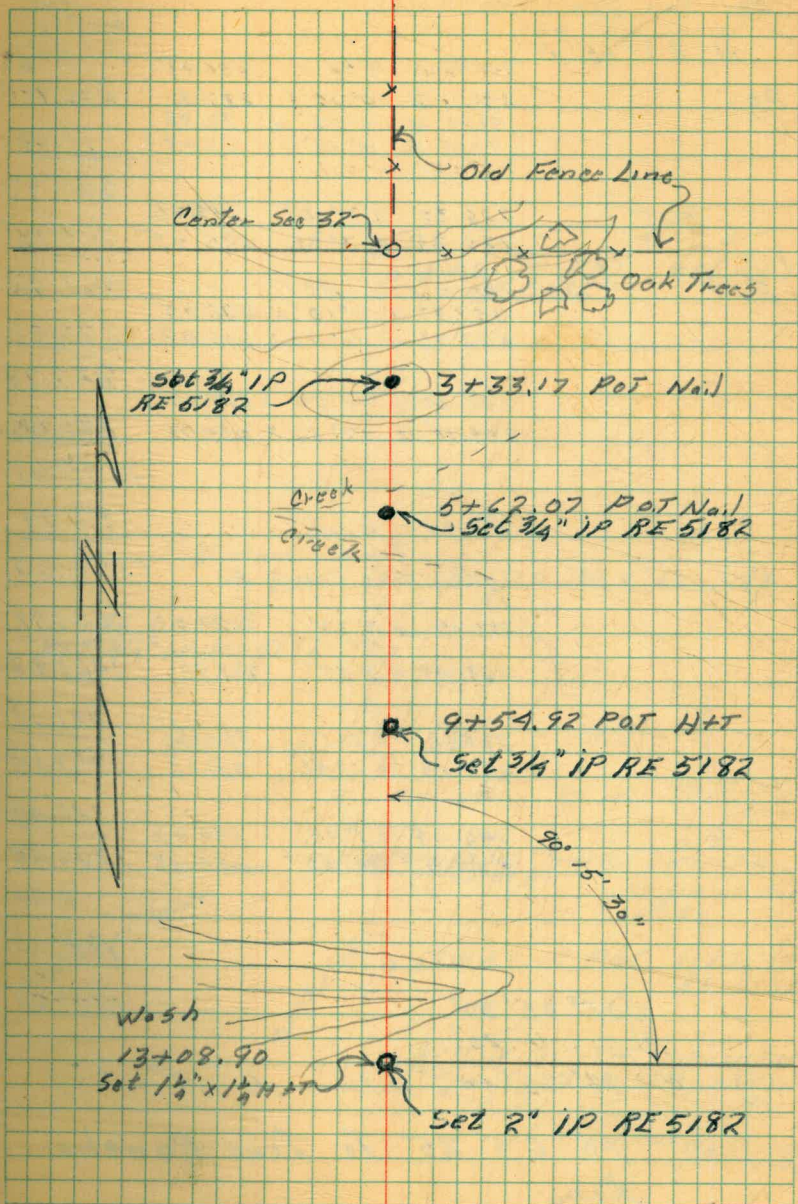 Old Fence Line
Center Sec 32
Oak Trees
Set 3/4" IP
RE 5182
3+33.17 POT Nail
Creek
5+62.07 POT Nail
Set 3/4" IP RE 5182
Creek
N
9+54.92 POT H+T
Set 3/4" IP RE 5182
90° 15' 30"
Wash
13+08.90
Set 1 1/4" x 1 1/4 H+T
Set 2" IP RE 5182